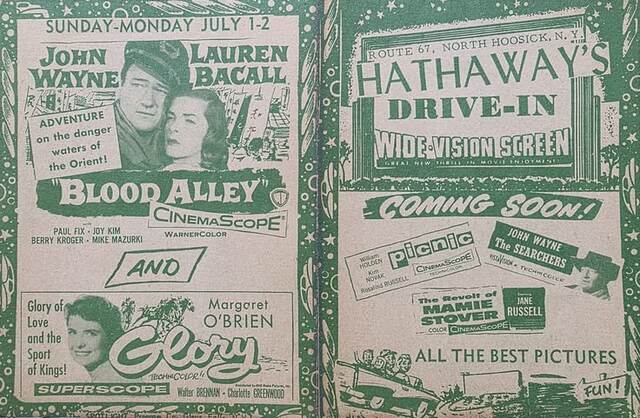 SUNDAY-MONDAY JULY 1-2
JOHN WAYNE
LAUREN BACALL
ADVENTURE
on the danger
waters of
the Orient!
"BLOOD ALLEY"
WB
CINEMASCOPE
WARNERCOLOR
PAUL FIX · JOY KIM
BERRY KROGER · MIKE MAZURKI
AND
Glory of
Love
and the
Sport
of Kings!
Margaret
O'BRIEN
Glory
TECHNICOLOR
SUPERSCOPE
Walter BRENNAN · Charlotte GREENWOOD
ROUTE 67, NORTH HOOSICK, N.Y.
HATHAWAY'S
DRIVE-IN
WIDE-VISION SCREEN
GREAT NEW THRILL IN MOVIE ENJOYMENT!
COMING SOON!
William
HOLDEN
Kim
NOVAK
Rosalind RUSSELL
picnic
CINEMASCOPE
TECHNICOLOR
JOHN WAYNE
The SEARCHERS
VISTAVISION · TECHNICOLOR
The Revolt of
MAMIE
STOVER
COLOR CINEMASCOPE
JANE
RUSSELL
ALL THE BEST PICTURES
FUN!